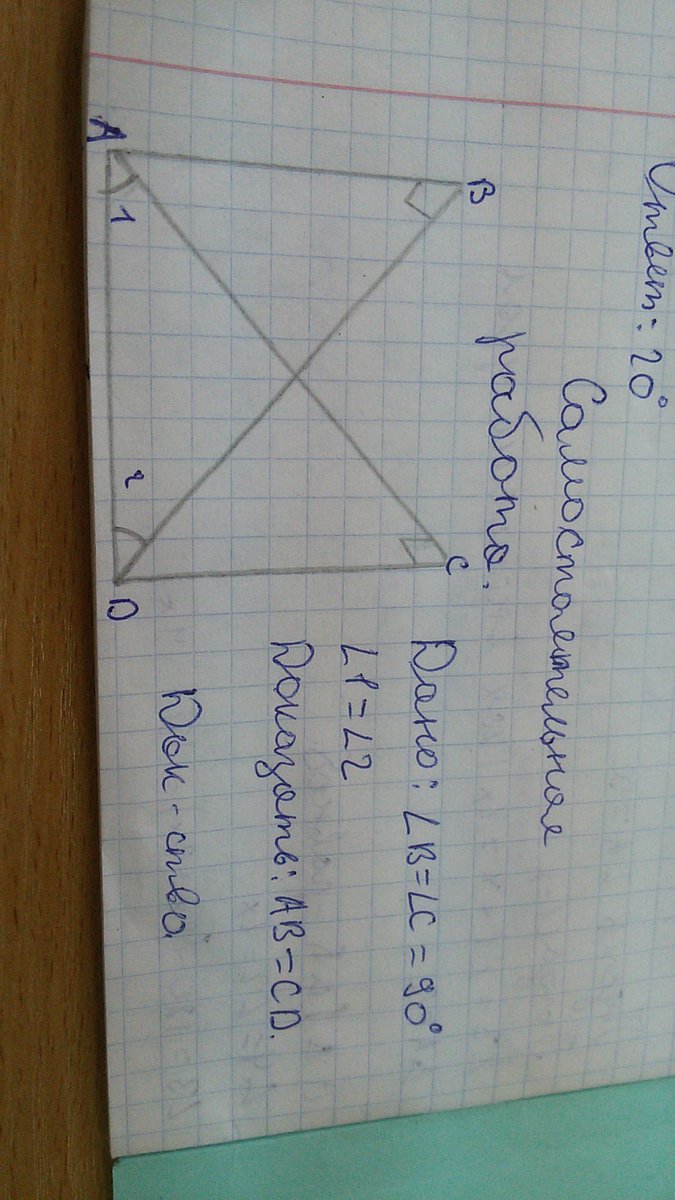 Ответ: 20°
Самостоятельная
работа.
B
C
A
1
2
D
Дано: ∠B=∠C=90°
∠1=∠2
Доказать: AB=CD.
Док-ство